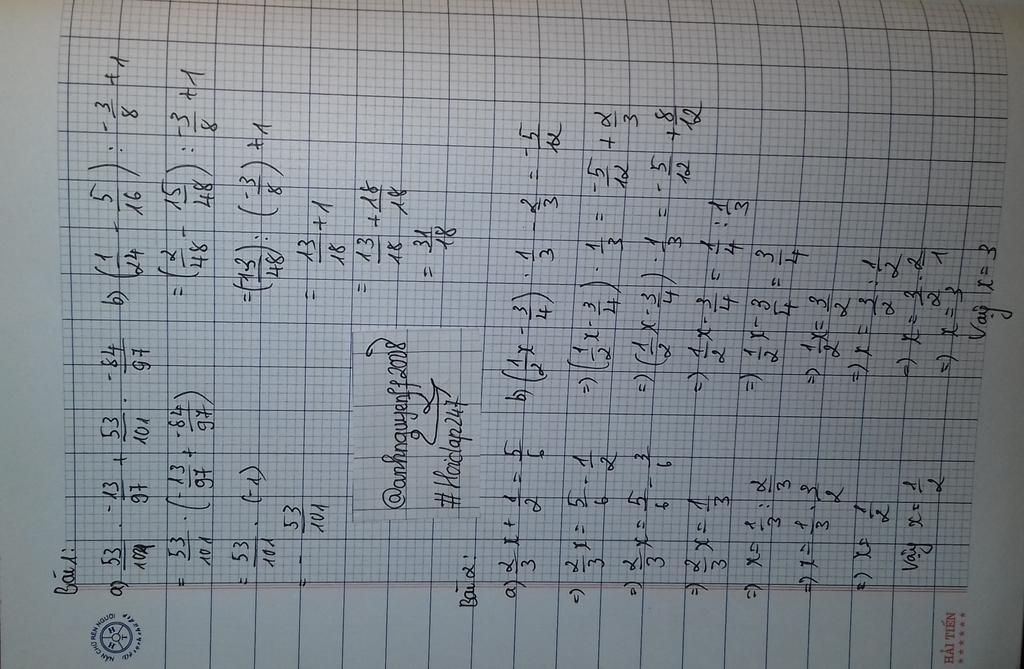 Bài 1:
a) 53/101 . -13/97 + 53/101 . -84/97
= 53/101 . (-13/97 + -84/97)
= 53/101 . (-1)
= - 53/101
b) (1/24 - 5/16) : -3/8 + 1
= (2/48 - 15/48) : -3/8 + 1
= (-13/48) : (-3/8) + 1
= 13/18 + 1
= 13/18 + 18/18
= 31/18
@anhnguyenff2008
#Hoidap247
Bài 2:
a) 2/3 x + 1/2 = 5/6
=) 2/3 x = 5/6 - 1/2
=) 2/3 x = 5/6 - 3/6
=) 2/3 x = 1/3
=) x = 1/3 : 2/3
=) x = 1/3 . 3/2
=) x = 1/2
Vậy x = 1/2
b) (1/2 x - 3/4) . 1/3 - 2/3 = -5/12
=) (1/2 x - 3/4) . 1/3 = -5/12 + 2/3
=) (1/2 x - 3/4) . 1/3 = -5/12 + 8/12
=) 1/2 x - 3/4 = 1/4 : 1/3
=) 1/2 x - 3/4 = 3/4
=) 1/2 x = 3/2
=) x = 3/2 : 1/2
=) x = 3/2 . 2/1
=) x = 3
Vậy x = 3
NÂN CHỮ RÈN NGƯỜI
HẢI TIẾN